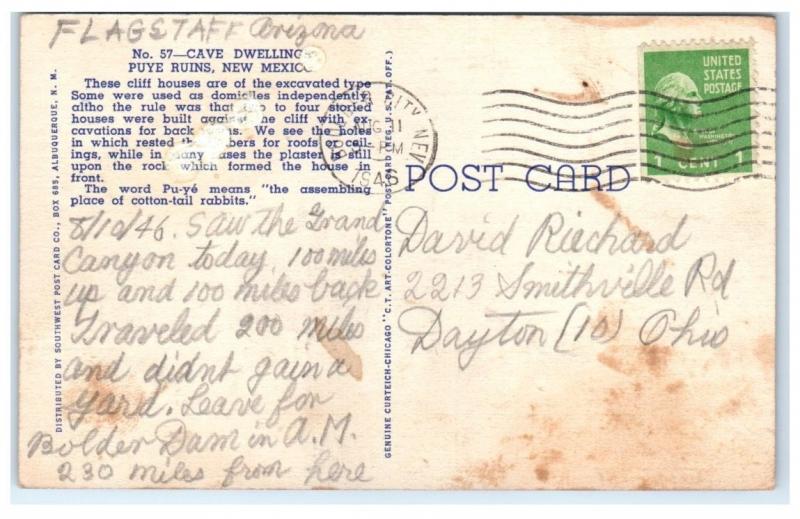 FLAGSTAFF Arizona
No. 57—CAVE DWELLING
PUYE RUINS, NEW MEXICO
These cliff houses are of the excavated type
Some were used as domiciles independently,
altho the rule was that two to four storied
houses were built against the cliff with ex-
cavations for back We see the holes
in which rested bers for roofs or ceil-
ings, while in many cases the plaster is still
upon the rock which formed the house in
front.
The word Pu-yé means "the assembling
place of cotton-tail rabbits."
8/10/46. Saw the Grand
Canyon today. 100 miles
up and 100 miles back
Traveled 200 miles
and didnt gain a
yard. Leave for
Bolder Dam in A.M.
230 miles from here
DISTRIBUTED BY SOUTHWEST POST CARD CO., BOX 685, ALBUQUERQUE, N. M.
GENUINE CURTEICH-CHICAGO "C. T. ART-COLORTONE" POST CARD (REG. U. S. PAT. OFF.)
CITY NEV
AUG 11
PM
1946
UNITED
STATES
POSTAGE
WASHINGTON
1 CENT 1
POST CARD
David Riechard
2213 Smithville Rd
Dayton (10) Ohio